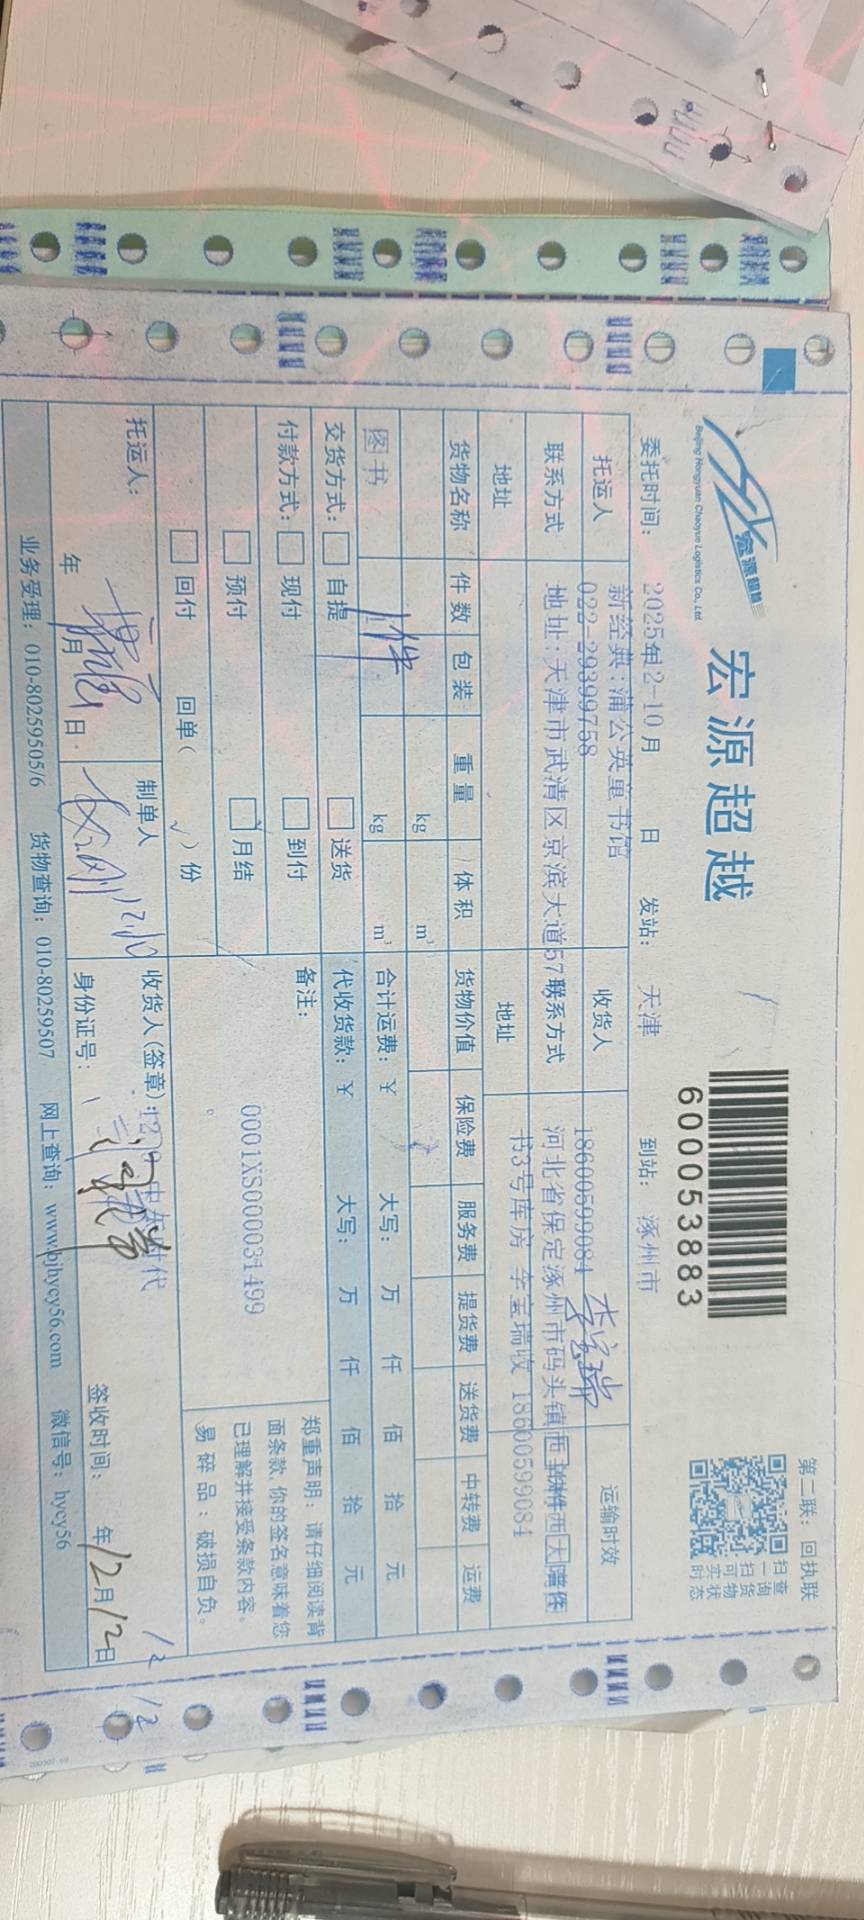 宏源超越
Beijing Hongyuan Chaoyue Logistics Co., Ltd.
宏源超越
600053883
第二联：回执联
扫一扫可实时
查询货物状态
委托时间： 2025年12-10月 日 发站： 天津 到站： 涿州市
托运人 新经典：蒲公英童书馆 收货人 李宝瑞 运输时效
联系方式 022-29399758 联系方式 18600599084
地址：天津市武清区京滨大道57
地址 地址 河北省保定涿州市码头镇西
书3号库房 李宝瑞收 18600599084
货物名称 件数 包装 重量 体积 货物价值 保险费 服务费 提货费 送货费 中转费 运费
kg m³
图书 1件 kg m³ 合计运费：¥ 大写： 万 仟 佰 拾 元
交货方式： 自提 送货 代收货款：¥ 大写： 万 仟 佰 拾 元
付款方式： 现付 到付 备注：
预付 月结 0001XS000031499
回付 回单（√）份
郑重声明：请仔细阅读背
面条款,你的签名意味着您
已理解并接受条款内容。
易碎品：破损自负。
托运人： 制单人 12.10 收货人(签章)：
年 月 日 身份证号： 签收时间： 年12月12日
12
12
业务受理：010-80259505/6 货物查询：010-80259507 网上查询：www.bjhycy56.com 微信号：hycy56